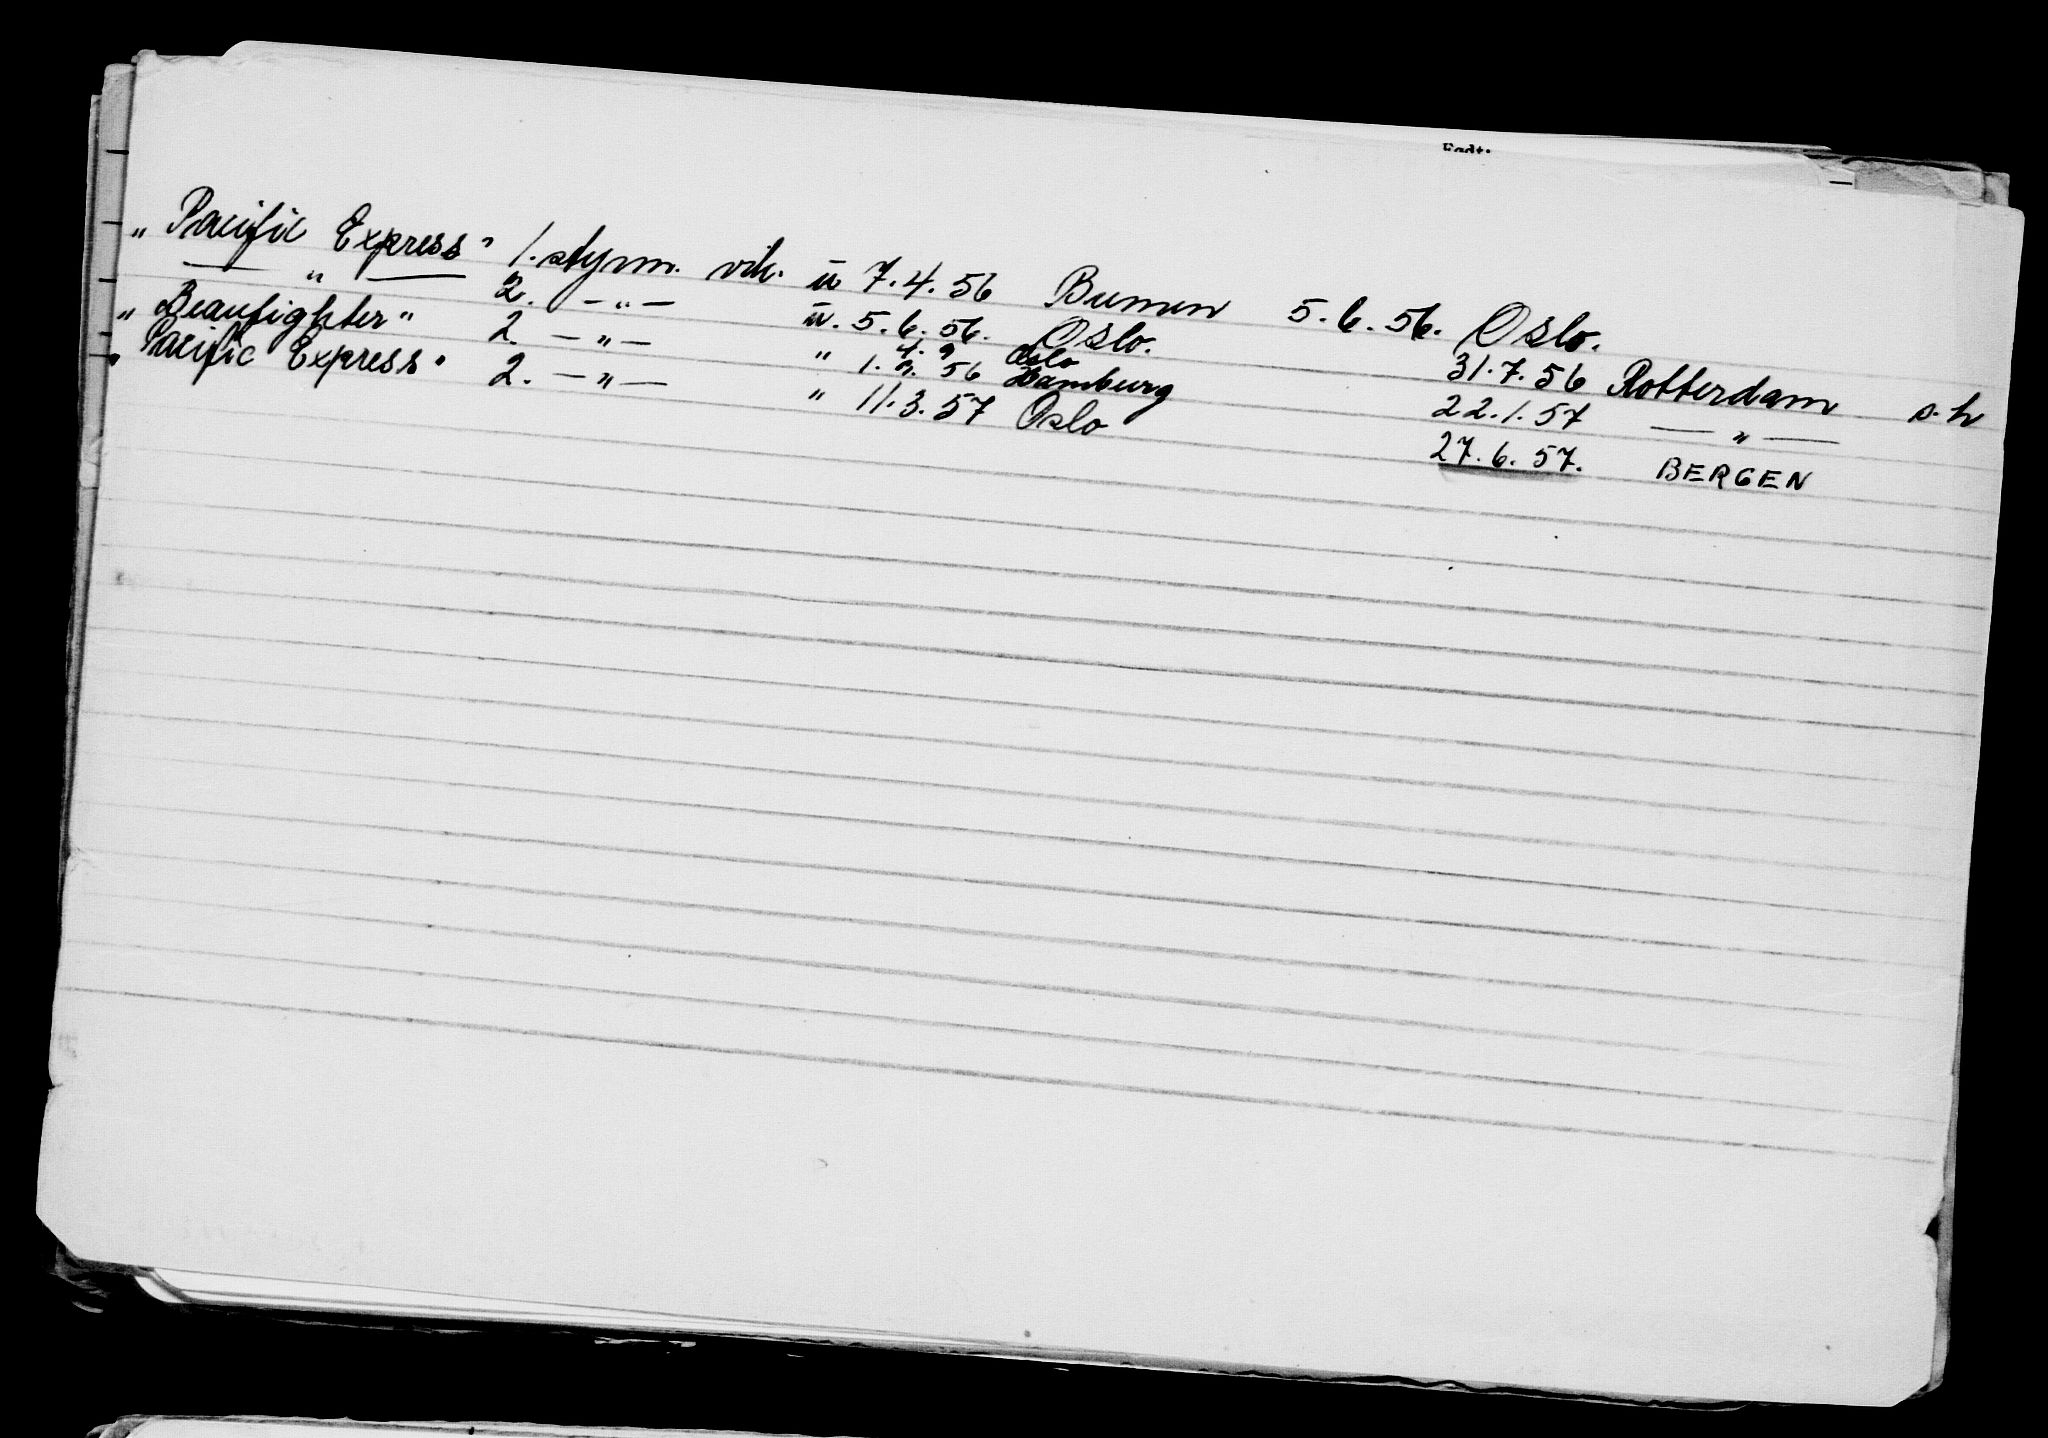 Født:
„Pacific Express" 1. styrm. vik. ü 7.4.56 Bremen 5.6.56. Oslo.
— „ — 2. — „ — ü. 5.6.56. Oslo. 31.7.56 Rotterdam s.h
„Beaufighter" 2. — „ — " 1. 56 Oslo Hamburg 22.1.57 — „ —
„Pacific Express" 2. — „ — " 11.3.57 Oslo 27.6.57. BERGEN